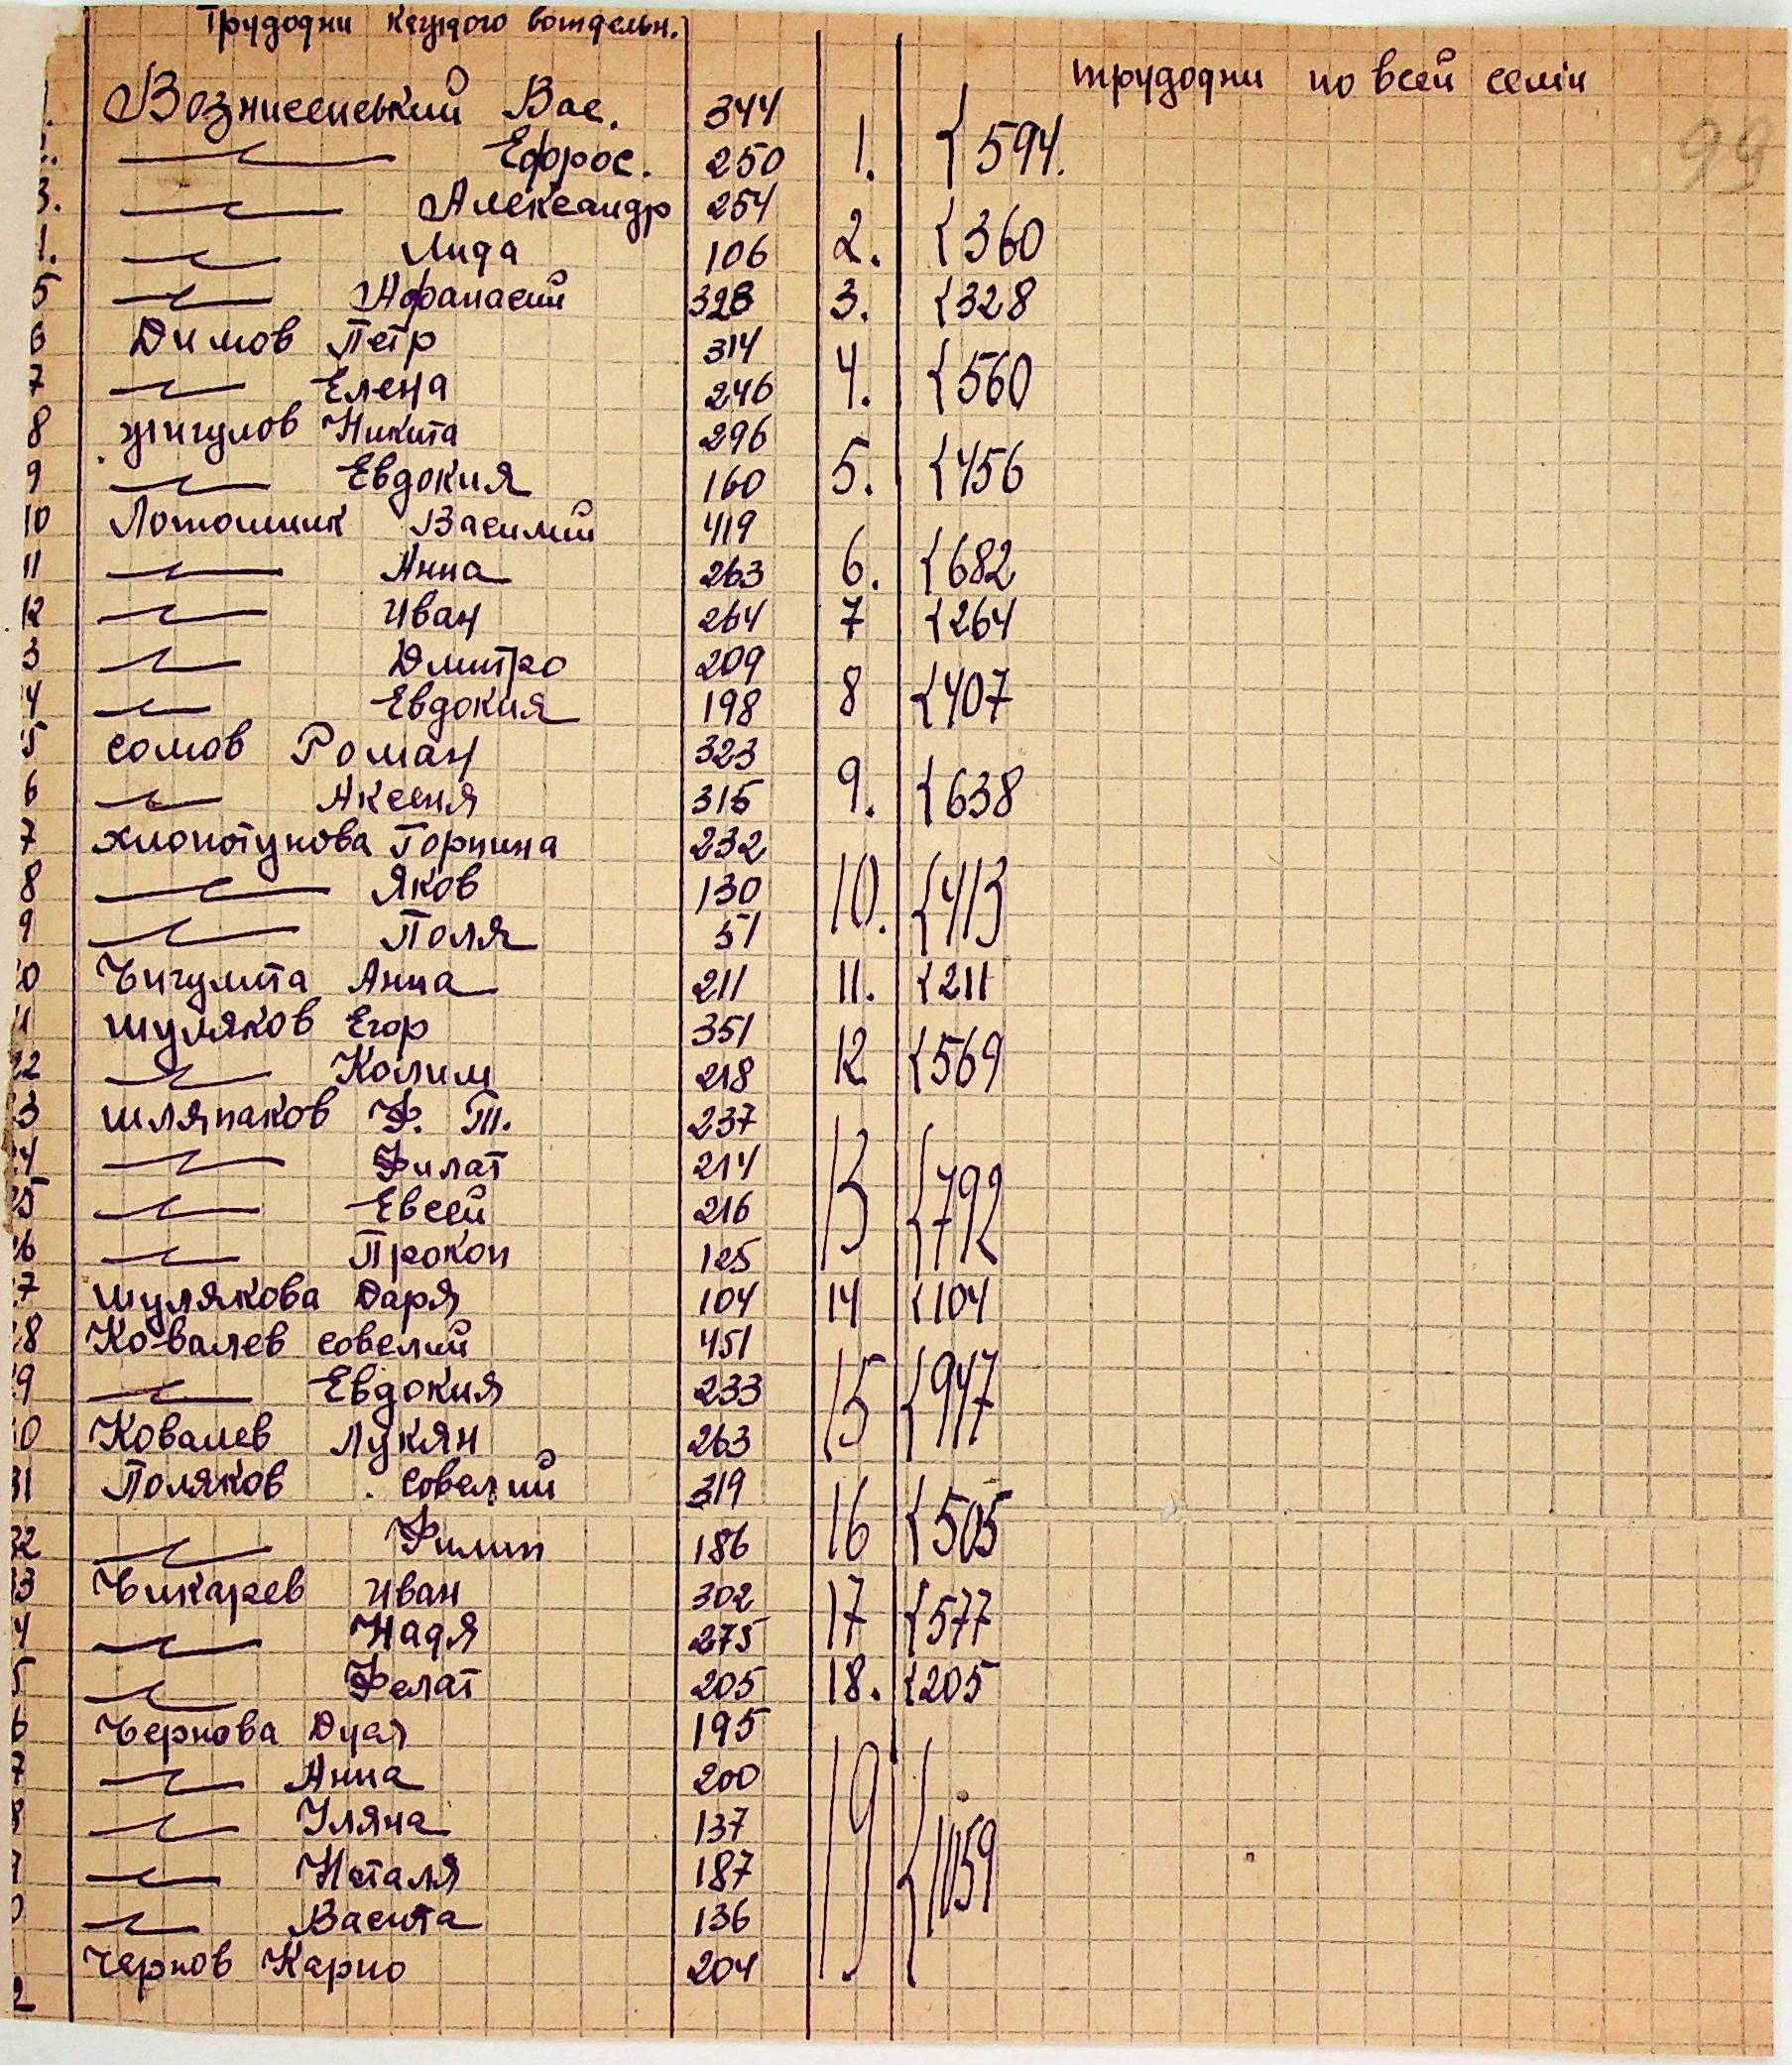 Трудодни каждого вотдельн.
трудодни по всей семіи
99
Вознисенський Вас. 344
2. —〃— Ефрос. 250 1. { 594.
3. —〃— Александр 254
—〃— Лида 106 2. { 360
5 —〃— Афанасий 328 3. { 328
6 Димов Петр 314
7 —〃— Елена 246 4. { 560
8 жигулов Никита 296
9 —〃— Евдокия 160 5. { 456
10 Лотошник Василий 419
11 —〃— Анна 263 6. { 682
12 —〃— Иван 264 7 { 264
3 —〃— Дмитро 209
4 —〃— Евдокия 198 8 { 407
5 сомов Роман 323
6 —〃— Аксеня 315 9. { 638
7 хлопотунова Горпина 232
8 —〃— Яков 130 10. { 413
9 —〃— Поля 51
0 Чигулита Анна 211 11. { 211
1 шуляков Егор 351
22 —〃— Колим 218 12 { 569
3 шляпаков Ф. Т. 237
4 —〃— Филат 214
25 —〃— Евсей 216 13 { 792
6 —〃— Прокоп 125
7 шулякова Даря 104 14 { 104
8 Ковалев совелий 451
9 —〃— Евдокия 233 15 { 947
0 Ковалев Лукян 263
31 Поляков совелий 319
32 —〃— Филип 186 16 { 505
33 Чикарев Иван 302
4 —〃— Надя 275 17 { 577
5 —〃— Фелат 205 18. { 205
6 Чернова Дуся 195
7 —〃— Анна 200
8 —〃— Уляна 137 19 { 1059
—〃— Наталя 187
—〃— Васита 136
Чернов Карпо 204
2